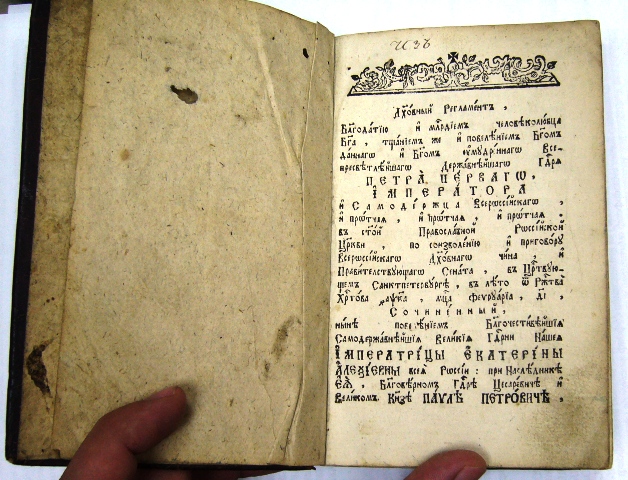 Дꙋхо́вный Регламентъ,
Бл҃года́тїю и҆ млⷭ҇рдїемъ человѣколю́бца
Бг҃а, тща́нїемъ же и҆ повелѣ́нїемъ Бг҃омъ
да́ннагѡ и҆ Бг҃омъ ᲂу҆мꙋ́дреннагѡ Все-
пресвѣтлѣ́йшагѡ Держа́внѣйшагѡ Гдⷭ҇ря
ПЕТРА̀ ПЕ́РВАГѠ,
І҆МПЕРА́ТОРА
и҆ Самоде́ржца Всерѡссі́йскагѡ,
и҆ прѡ́тчая, и҆ прѡ́тчая, и҆ прѡ́тчая.
въ ст҃о́й Правосла́вной Рѡссі́йской
Цр҃кви, по соизволе́нїю и҆ пригово́рꙋ
Всерѡссі́йскагѡ Дꙋхо́внагѡ чи́на, и҆
Прави́тельствꙋющагѡ Сена́та, въ Црⷭ҇твꙋю-
щемъ Санктпетербꙋ́ргѣ, въ лѣ́то ѿ Ржⷭ҇тва̀
Хрⷭ҇то́ва ҂аѱк҃а, мц҃а феврꙋа́рїа, д҃і,
Сочине́нный,
ны́нѣ повелѣ́нїемъ Благочести́вѣйшїѧ
Самодержа́внѣйшїѧ Вели́кїѧ Гдⷭ҇рни На́шеѧ
І҆МПЕРАТРИ́ЦЫ Е҆КАТЕРИ́НЫ
А҆ЛЕѮІ́ЕВНЫ всеѧ̀ Рѡссі́и: при Наслѣ́дникѣ
Е҆Ѧ̀, Благовѣ́рномъ Гдⷭ҇рѣ Цесаре́вичѣ и҆
Вели́комъ Кнѧ́зѣ ПА́ѴЛѢ ПЕТРО́ВИЧѢ,